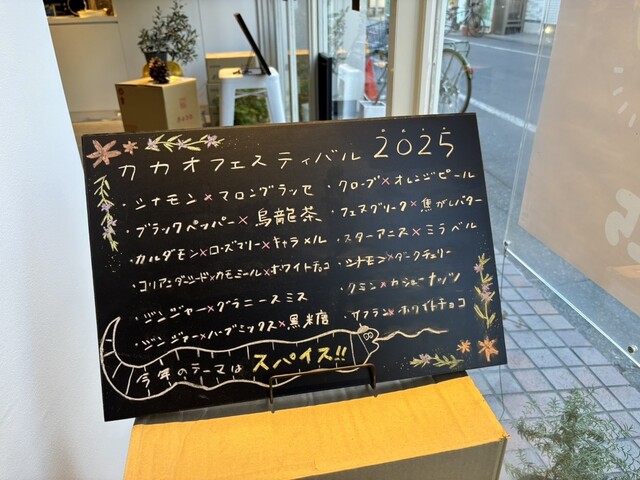 カカオフェスティバル 2025
・シナモン×マロングラッセ
・ブラックペッパー×烏龍茶
・カルダモン×ローズマリー×キャラメル
・コリアンダーシード×カモミール×ホワイトチョコ
・ジンジャー×グラニースミス
・ジンジャー×ハーブミックス×黒米糖
・クローブ×オレンジピール
・フェヌグリーク×焦がしバター
・スターアニス×ミラベル
・シナモン×ダークチェリー
・クミン×カシューナッツ
・サフラン×ホワイトチョコ
今年のテーマは スパイス!!